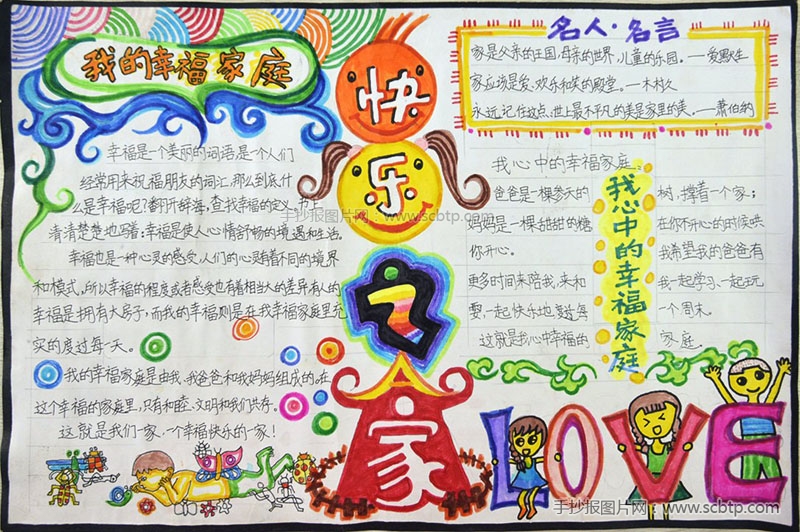 我的幸福家庭
幸福是一个美丽的词语,是一个人们
经常用来祝福朋友的词汇,那么到底什
么是幸福呢?翻开辞海,查找幸福的定义,书上
清清楚楚地写着:幸福是使人心情舒畅的境遇和生活。
幸福也是一种心灵的感受,人们的心灵有着不同的境界
和模式,所以幸福的程度或者感受也有着相当大的差异,有人的
幸福是拥有大房子,而我的幸福则是在我幸福家庭里充
实的度过每一天。
我的幸福家庭是由我、我爸爸和我妈妈组成的。在
这个幸福的家庭里,只有和睦、文明和我们共存。
这就是我们一家,一个幸福快乐的一家!
快
乐
之
家
名人·名言
家是父亲的王国,母亲的世界,儿童的乐园。——爱默生
家应该是爱、欢乐和笑的殿堂。——木村久一
永远记住这点,世上最不平凡的美是家里的美。——萧伯纳
我心中的幸福家庭
爸爸是一棵参天的树,撑着一个家;
妈妈是一棵甜甜的糖,在你不开心的时候哄
你开心。我希望我的爸爸有
更多时间来陪我,来和我一起学习,一起玩
耍,一起快乐地度过每一个周末。
这就是我心中幸福的家庭
我心中的幸福家庭
LOVE
手抄报图片网:www.scbtp.com
手抄报图片网:www.scbtp.com